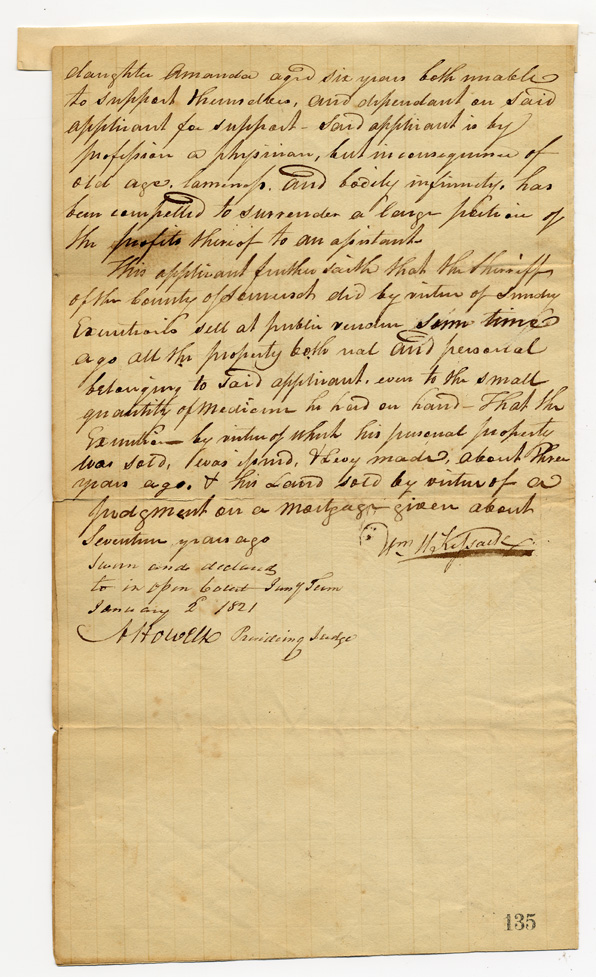 daughter Amanda aged six years both unable
to support themselves, and dependant on said
applicant for support - Said applicant is by
profession a physician, but in consequence of
old age, lameness, and bodily infirmity, has
been compelled to surrender a large portion of
the profits thereof to an assistant
This applicant further saith that the Sherriff
of the County of Somerset did by virtue of Sundry
Executions sell at public vendue some time
ago all the property both real and personal
belonging to said applicant, even to the small
quantity of Medicine he had on hand - That the
Execution by virtue of which his personal property
was sold, was issued, & Levy made, about three
years ago. & his Land sold by virtue of a
Judgment on a mortgage given about
Seventeen years ago
Wm H.
Sworn and declared
to in open Court Jany Term
January 2 1821
Howell Presiding Judge
135